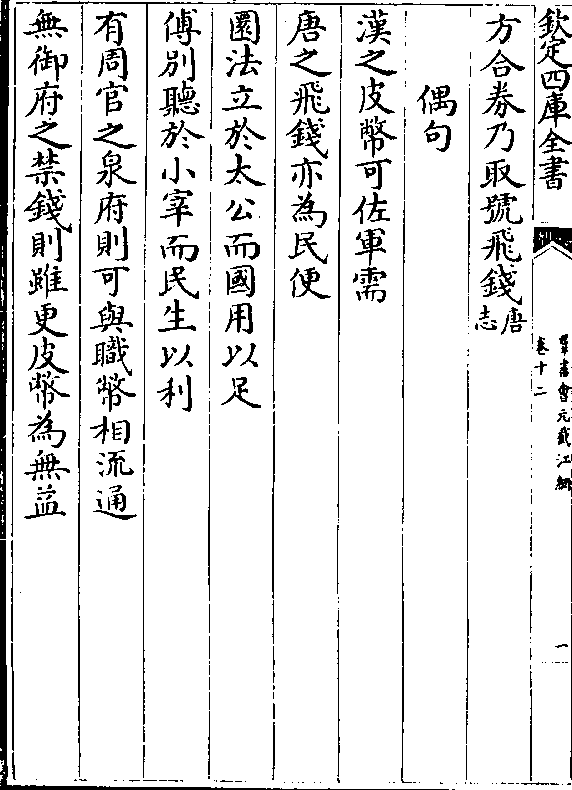 欽定四庫全書
羣書會元截江網
卷十二
一
方合券乃取號飛錢唐志
偶句
漢之皮幣可佐軍需
唐之飛錢亦為民便
圜法立於太公而國用以足
傅別聽於小宰而民生以利
有周官之泉府則可與職幣相流通
無御府之禁錢則雖更皮幣為無益